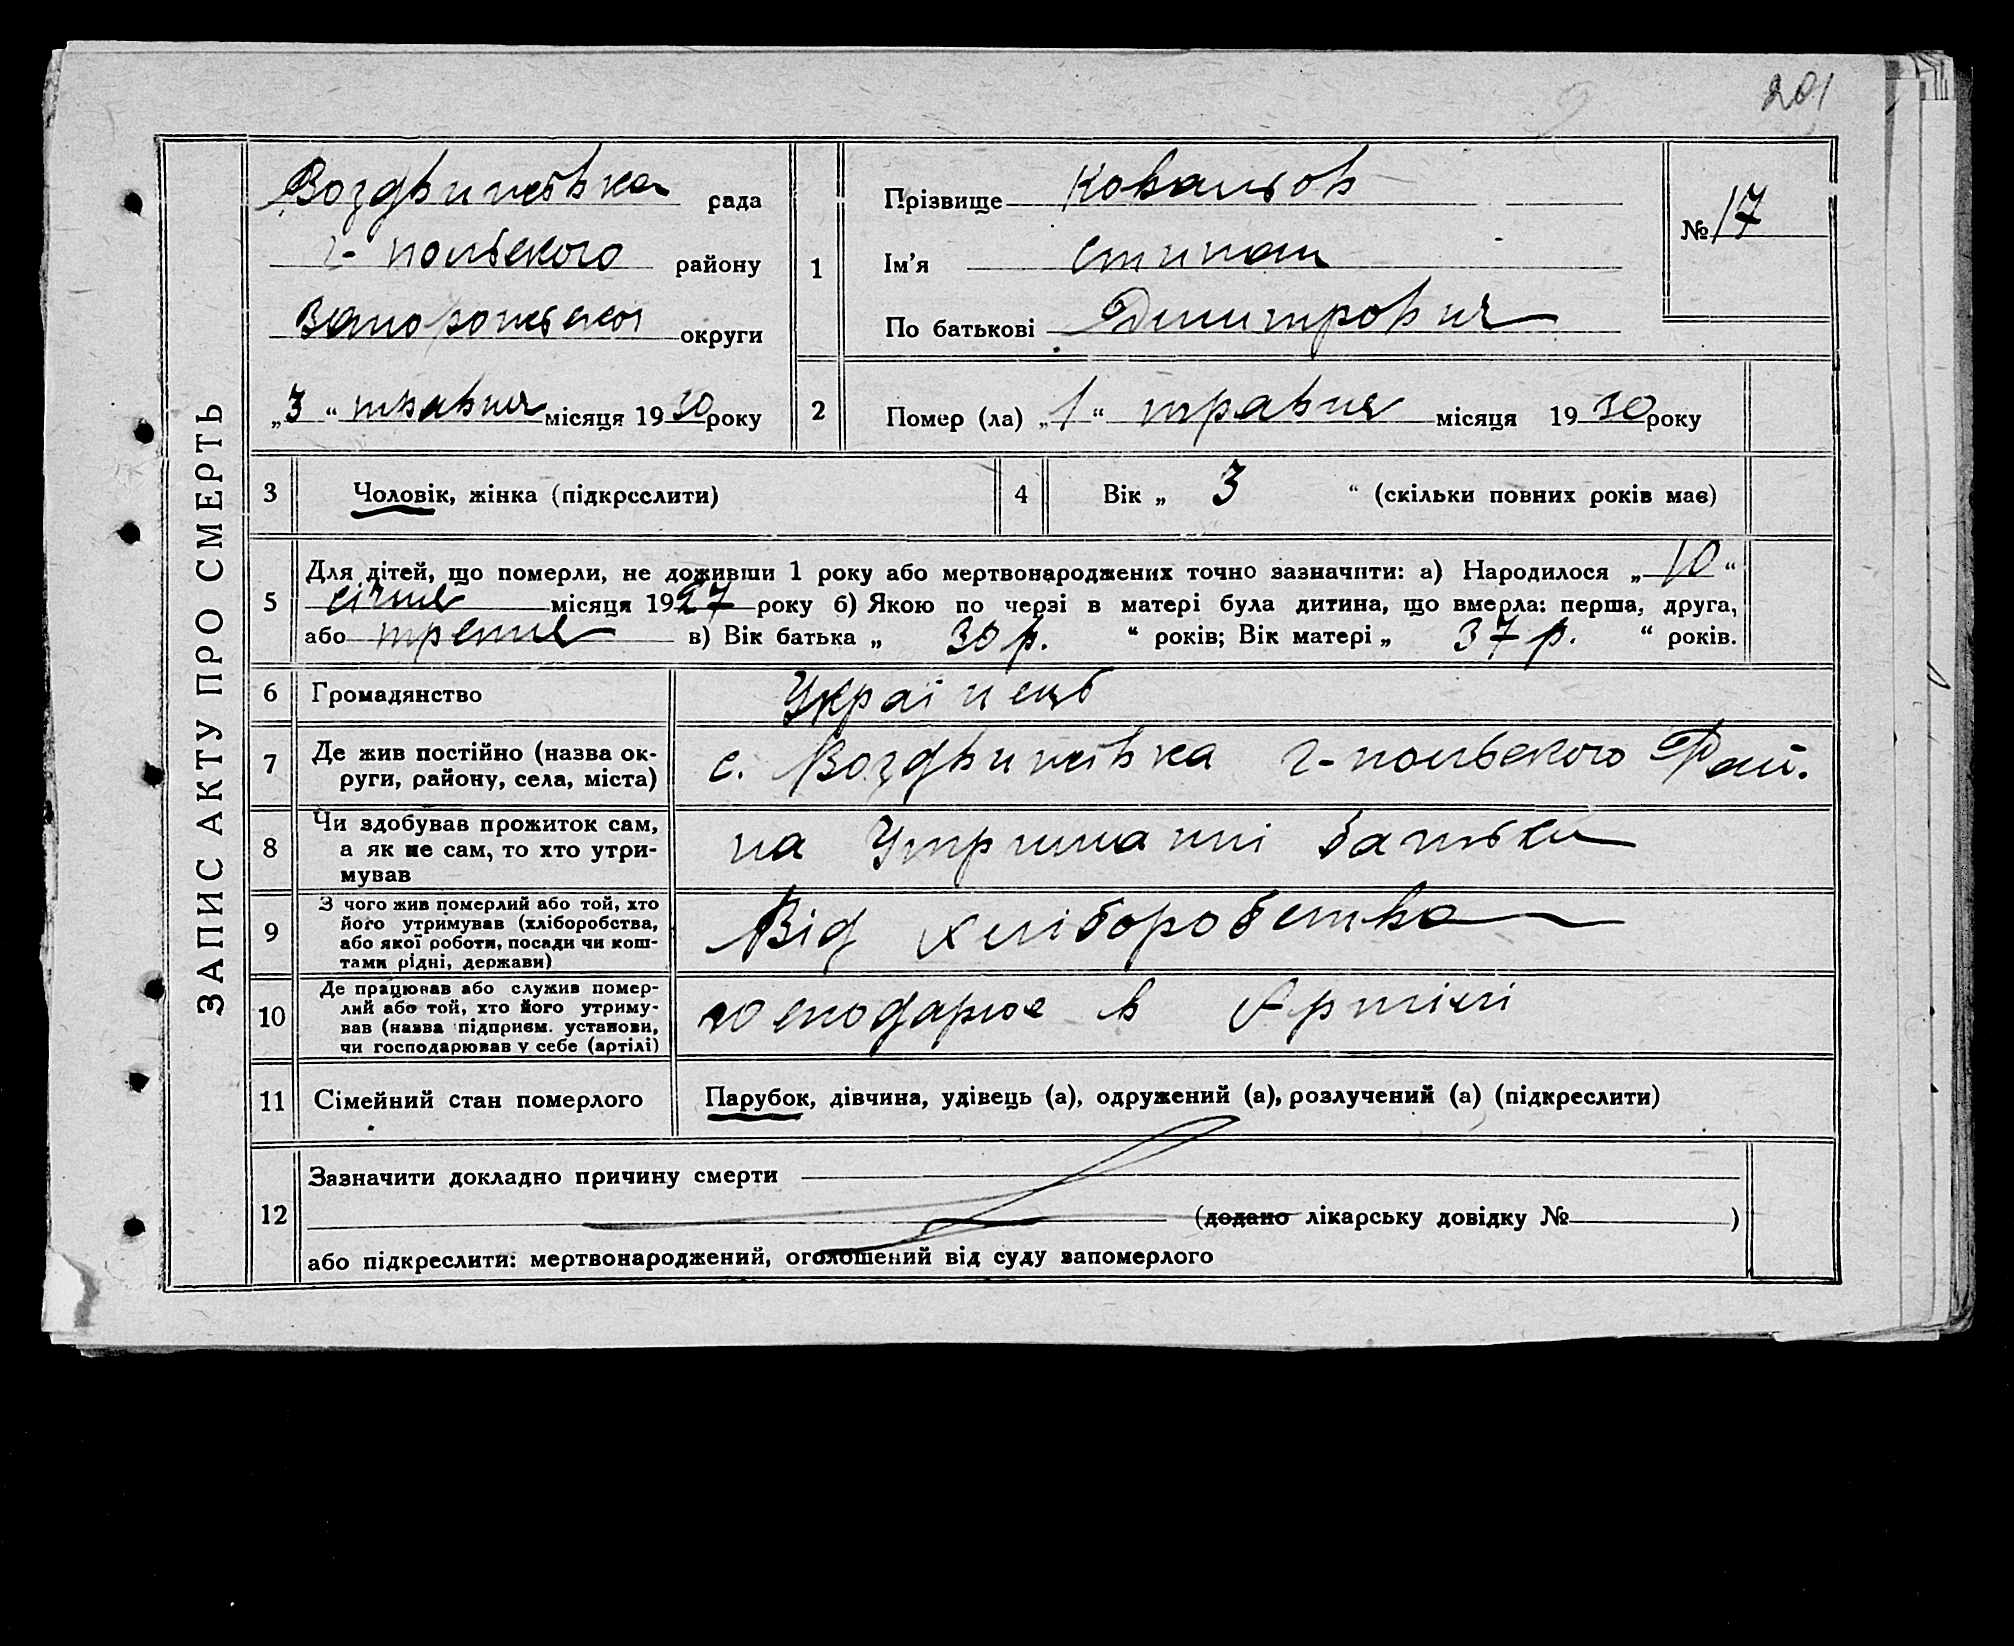 201
ЗАПИС АКТУ ПРО СМЕРТЬ
Воздвижівка рада
г-польского району
Запорожської округи
„3“ травня місяця 1930 року
1
Прізвище Ковальов
Ім’я Стипан
По батькові Димитровия
№ 17
2
Помер (ла) „1“ травня місяця 1930 року
3
Чоловік, жінка (підкреслити)
4
Вік „ 3 “ (скільки повних років має)
5
Для дітей, що померли, не доживши 1 року або мертвонароджених точно зазначити: а) Народилося „10“
січня місяця 1927 року б) Якою по черзі в матері була дитина, що вмерла: перша, друга,
або третя в) Вік батька „ 30 р. “ років; Вік матері „ 37 р. “ років.
6
Громадянство
Українець
7
Де жив постійно (назва ок-
руги, району, села, міста)
с. Воздвижівка г-польского Рай.
8
Чи здобував прожиток сам,
а як не сам, то хто утри-
мував
на Утриманні батька
9
З чого жив померлий або той, хто
його утримував (хліборобства,
або якої роботи, посади чи кош-
тами рідні, держави)
Від хліборобства
10
Де працював або служив помер-
лий або той, хто його утриму-
вав (назва підприєм. установи,
чи господарював у себе (артілі)
господарює в Артілі
11
Сімейний стан померлого
Парубок, дівчина, удівець (а), одружений (а), розлучений (а) (підкреслити)
12
Зазначити докладно причину смерти
(додано лікарську довідку № )
або підкреслити: мертвонароджений, оголошений від суду запомерлого